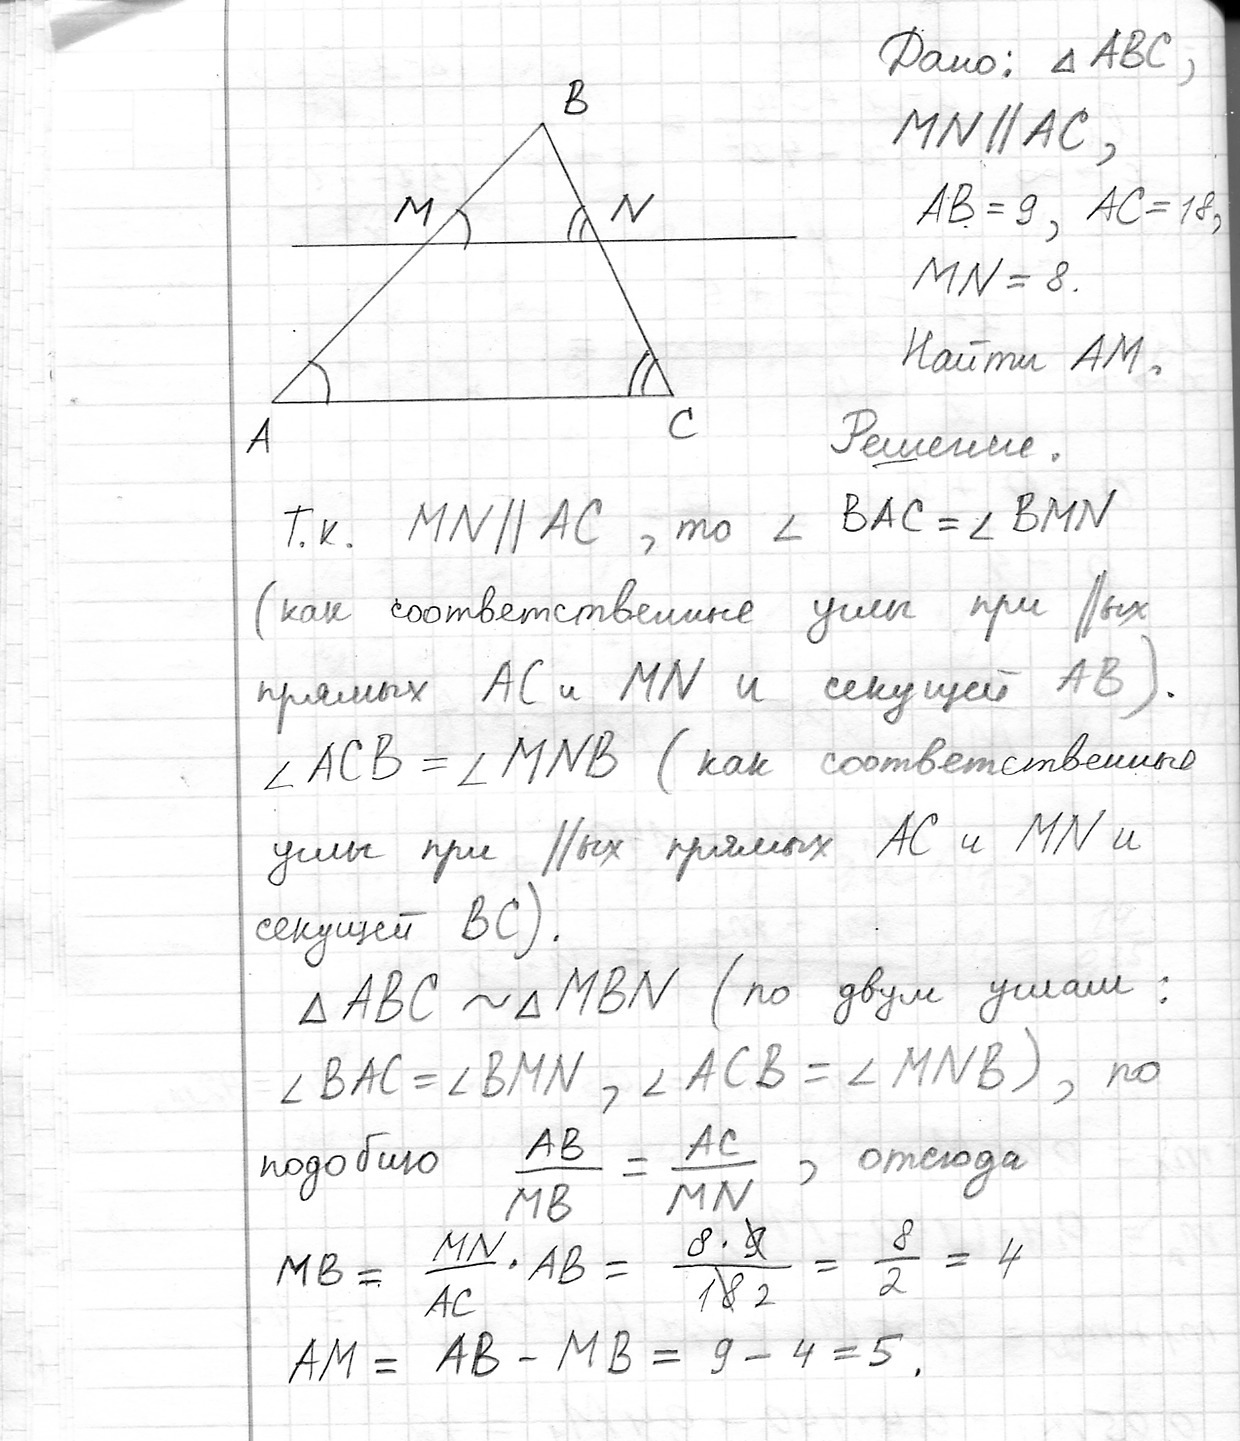 Дано: △ABC,
MN||AC,
AB=9, AC=18,
MN=8.
Найти AM.
B
M
N
A
C
Решение.
Т.к. MN||AC, то ∠BAC=∠BMN
(как соответственные углы при ||ых
прямых AC и MN и секущей AB).
∠ACB=∠MNB (как соответственные
углы при ||ых прямых AC и MN и
секущей BC).
△ABC ~ △MBN (по двум углам:
∠BAC=∠BMN, ∠ACB=∠MNB), по
подобию AB/MB = AC/MN, отсюда
MB = MN/AC · AB = 8·9/18 2 = 8/2 = 4
AM = AB - MB = 9 - 4 = 5.